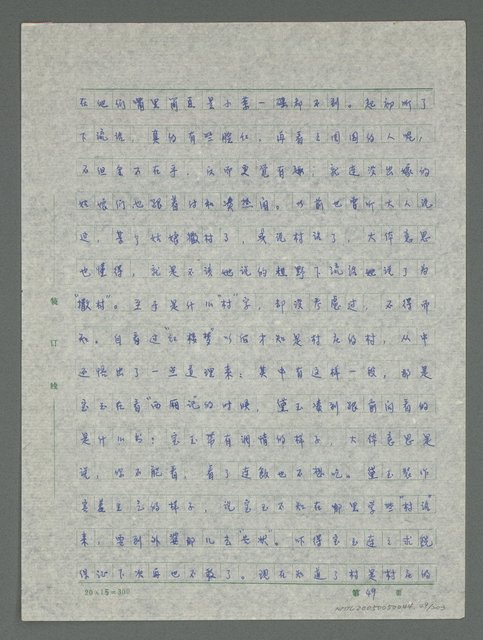 在他们嘴里简直是小菜一碟都不到。起初听了
下流话，真的有些脸红，再看之周围的人呢，
不但全不在乎，反而更觉有趣，就连没出嫁的
姑娘们也跟着讨和凑热闹。以前也曾听大人说
过，某个姑娘撒村了，或说村话了，大体意思
也懂得，就是不该她说的粗野下流话她说了为
“撒村”。至于是什么“村”字，却没考虑过，不得而
知。自看过“红楼梦”以后才知是村庄的村，从中
还悟出了一些道理来：其中有这样一段，那是
宝玉在看“西厢记”的时候，黛玉凑到跟前问看的
是什么书；宝玉带有调情的样子，大体意思是
说，你不能看，看了连饭也不想吃。黛玉装作
害羞生气的样子，说宝玉不知在哪里学些“村话”
来，要到外婆那儿去“告状”。吓得宝玉连之求饶
保证下次再也不敢了。现在知道了村是村庄的
装
订
线
20×15=300
第49页
NMTL20050050044 49/503